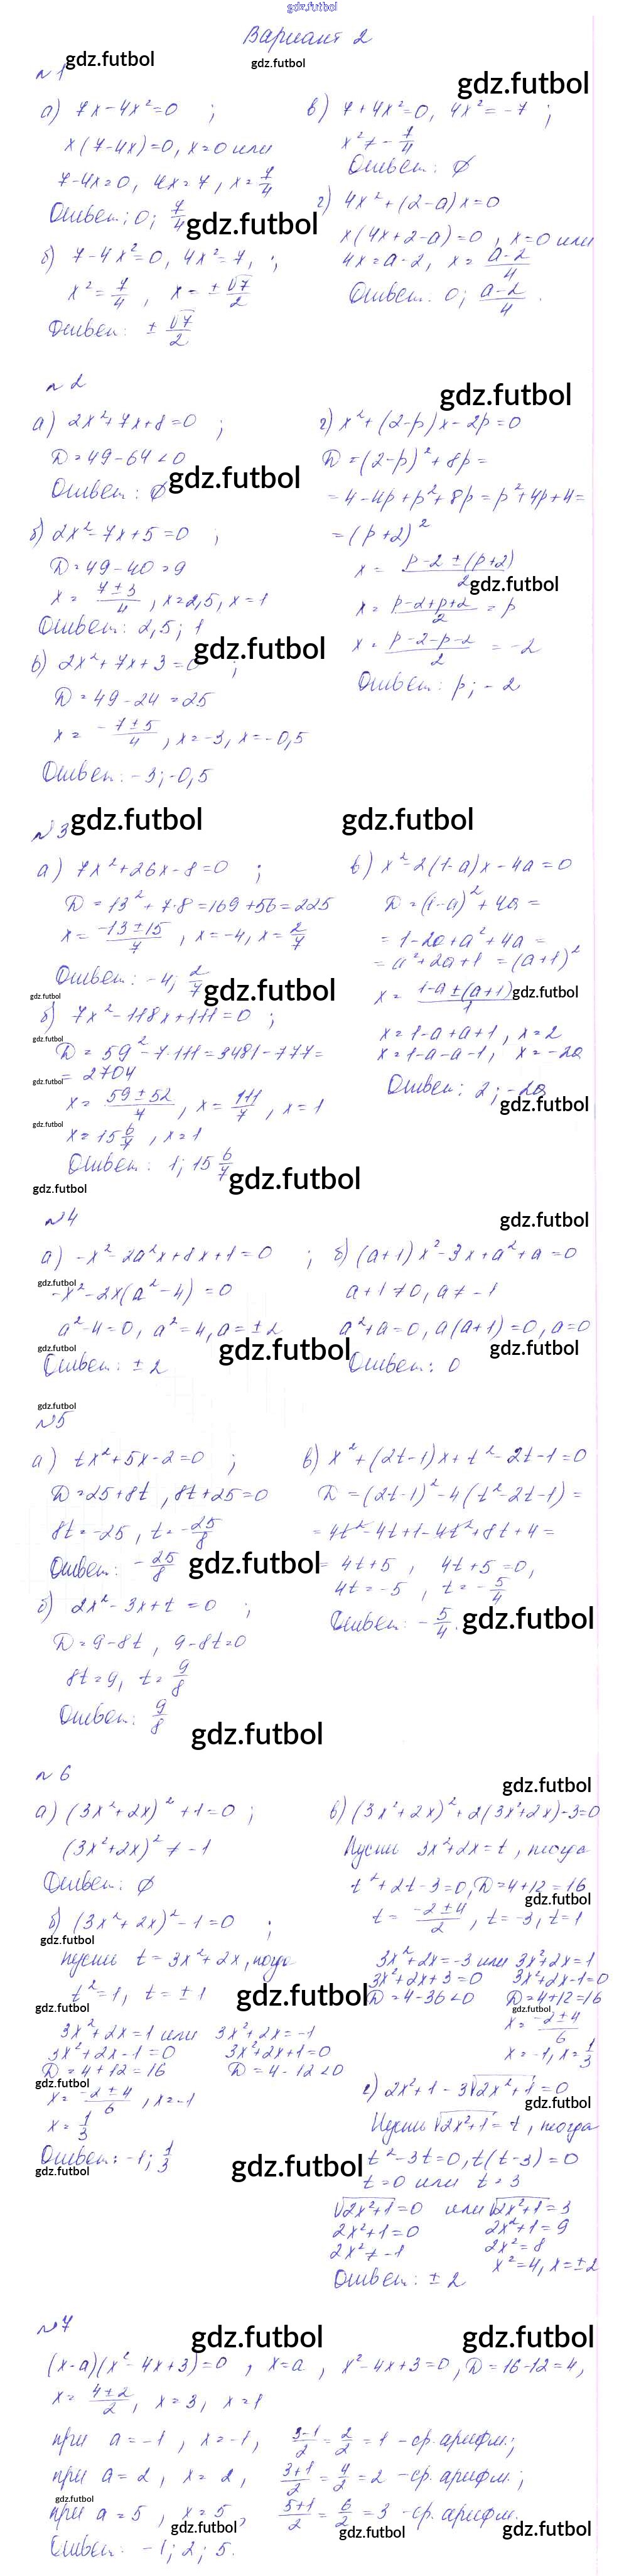 gdz.futbol
Вариант 2
№1 gdz.futbol
gdz.futbol
gdz.futbol
а) 7x-4x²=0 ;
x(7-4x)=0, x=0 или
7-4x=0, 4x=7, x=7/4
Ответ: 0; 7/4
gdz.futbol
б) 7-4x²=0, 4x²=7, ;
x²=7/4, x=±√7/2
Ответ: ±√7/2
в) 7+4x²=0, 4x²=-7 ;
x²≠-7/4
Ответ: ∅
г) 4x²+(2-a)x=0
x(4x+2-a)=0, x=0 или
4x=a-2, x=(a-2)/4
Ответ: 0; (a-2)/4.
№2
gdz.futbol
а) 2x²+7x+8=0 ;
D=49-64<0
Ответ: ∅
gdz.futbol
б) 2x²-7x+5=0 ;
D=49-40=9
x=(7±3)/4, x=2,5, x=1
Ответ: 2,5; 1
gdz.futbol
в) 2x²+7x+3=0 ;
D=49-24=25
x=(-7±5)/4, x=-3, x=-0,5
Ответ: -3; -0,5
г) x²+(2-p)x-2p=0
D=(2-p)²+8p=
=4-4p+p²+8p=p²+4p+4=
=(p+2)²
x=(p-2±(p+2))/2
gdz.futbol
x=(p-2+p+2)/2=p
x=(p-2-p-2)/2=-2
Ответ: p; -2
№3 gdz.futbol
gdz.futbol
а) 7x²+26x-8=0 ;
D=13²+7·8=169+56=225
x=(-13±15)/7, x=-4, x=2/7
Ответ: -4; 2/7
gdz.futbol
gdz.futbol
б) 7x²-118x+111=0 ;
gdz.futbol
D=59²-7·111=3481-777=
=2704
gdz.futbol
x=(59±52)/7, x=111/7, x=1
gdz.futbol
x=15 6/7, x=1
Ответ: 1; 15 6/7
gdz.futbol
gdz.futbol
в) x²-2(1-a)x-4a=0
D=(1-a)²+4a=
=1-2a+a²+4a=
=a²+2a+1=(a+1)²
x=(1-a±(a+1))/1
gdz.futbol
x=1-a+a+1, x=2
x=1-a-a-1, x=-2a
Ответ: 2; -2a
gdz.futbol
№4
gdz.futbol
а) -x²-2a²x+8x+1=0 ;
gdz.futbol
-x²-2x(a²-4)=0
a²-4=0, a²=4, a=±2
gdz.futbol
gdz.futbol
Ответ: ±2
б) (a+1)x²-3x+a²+a=0
a+1≠0, a≠-1
a²+a=0, a(a+1)=0, a=0
gdz.futbol
Ответ: 0
gdz.futbol
№5
а) tx²+5x-2=0 ;
D=25+8t, 8t+25=0
8t=-25, t=-25/8
Ответ: -25/8
gdz.futbol
б) 2x²-3x+t=0 ;
D=9-8t, 9-8t=0
8t=9, t=9/8
Ответ: 9/8
gdz.futbol
в) x²+(2t-1)x+t²-2t-1=0
D=(2t-1)²-4(t²-2t-1)=
=4t²-4t+1-4t²+8t+4=
=4t+5, 4t+5=0,
4t=-5, t=-5/4
Ответ: -5/4.
gdz.futbol
№6
gdz.futbol
а) (3x²+2x)²+1=0 ;
(3x²+2x)²≠-1
Ответ: ∅
б) (3x²+2x)²-1=0 ;
gdz.futbol
пусть t=3x²+2x, тогда
t²=1, t=±1
gdz.futbol
gdz.futbol
3x²+2x=1 или 3x²+2x=-1
3x²+2x-1=0 3x²+2x+1=0
D=4+12=16 D=4-12<0
gdz.futbol
x=(-2±4)/6, x=-1
x=1/3
Ответ: -1; 1/3
gdz.futbol
gdz.futbol
в) (3x²+2x)²+2(3x²+2x)-3=0
Пусть 3x²+2x=t, тогда
t²+2t-3=0, D=4+12=16
gdz.futbol
t=(-2±4)/2, t=-3, t=1
3x²+2x=-3 или 3x²+2x=1
3x²+2x+3=0 3x²+2x-1=0
D=4-36<0 D=4+12=16
gdz.futbol
x=(-2±4)/6
x=-1, x=1/3
г) 2x²+1-3√2x²+1=0
gdz.futbol
Пусть √2x²+1=t, тогда
t²-3t=0, t(t-3)=0
t=0 или t=3
√2x²+1=0 или √2x²+1=3
2x²+1=0 2x²+1=9
2x²≠-1 2x²=8
x²=4, x=±2
Ответ: ±2
№7
gdz.futbol
gdz.futbol
(x-a)(x²-4x+3)=0, x=a, x²-4x+3=0, D=16-12=4,
x=(4±2)/2, x=3, x=1
при a=-1, x=-1, (3-1)/2=2/2=1 -ср. арифм.;
при a=2, x=2, (3+1)/2=4/2=2 -ср. арифм.;
gdz.futbol
при a=5, x=5, (5+1)/2=6/2=3 -ср. арифм.
gdz.futbol
gdz.futbol
gdz.futbol
Ответ: -1; 2; 5.